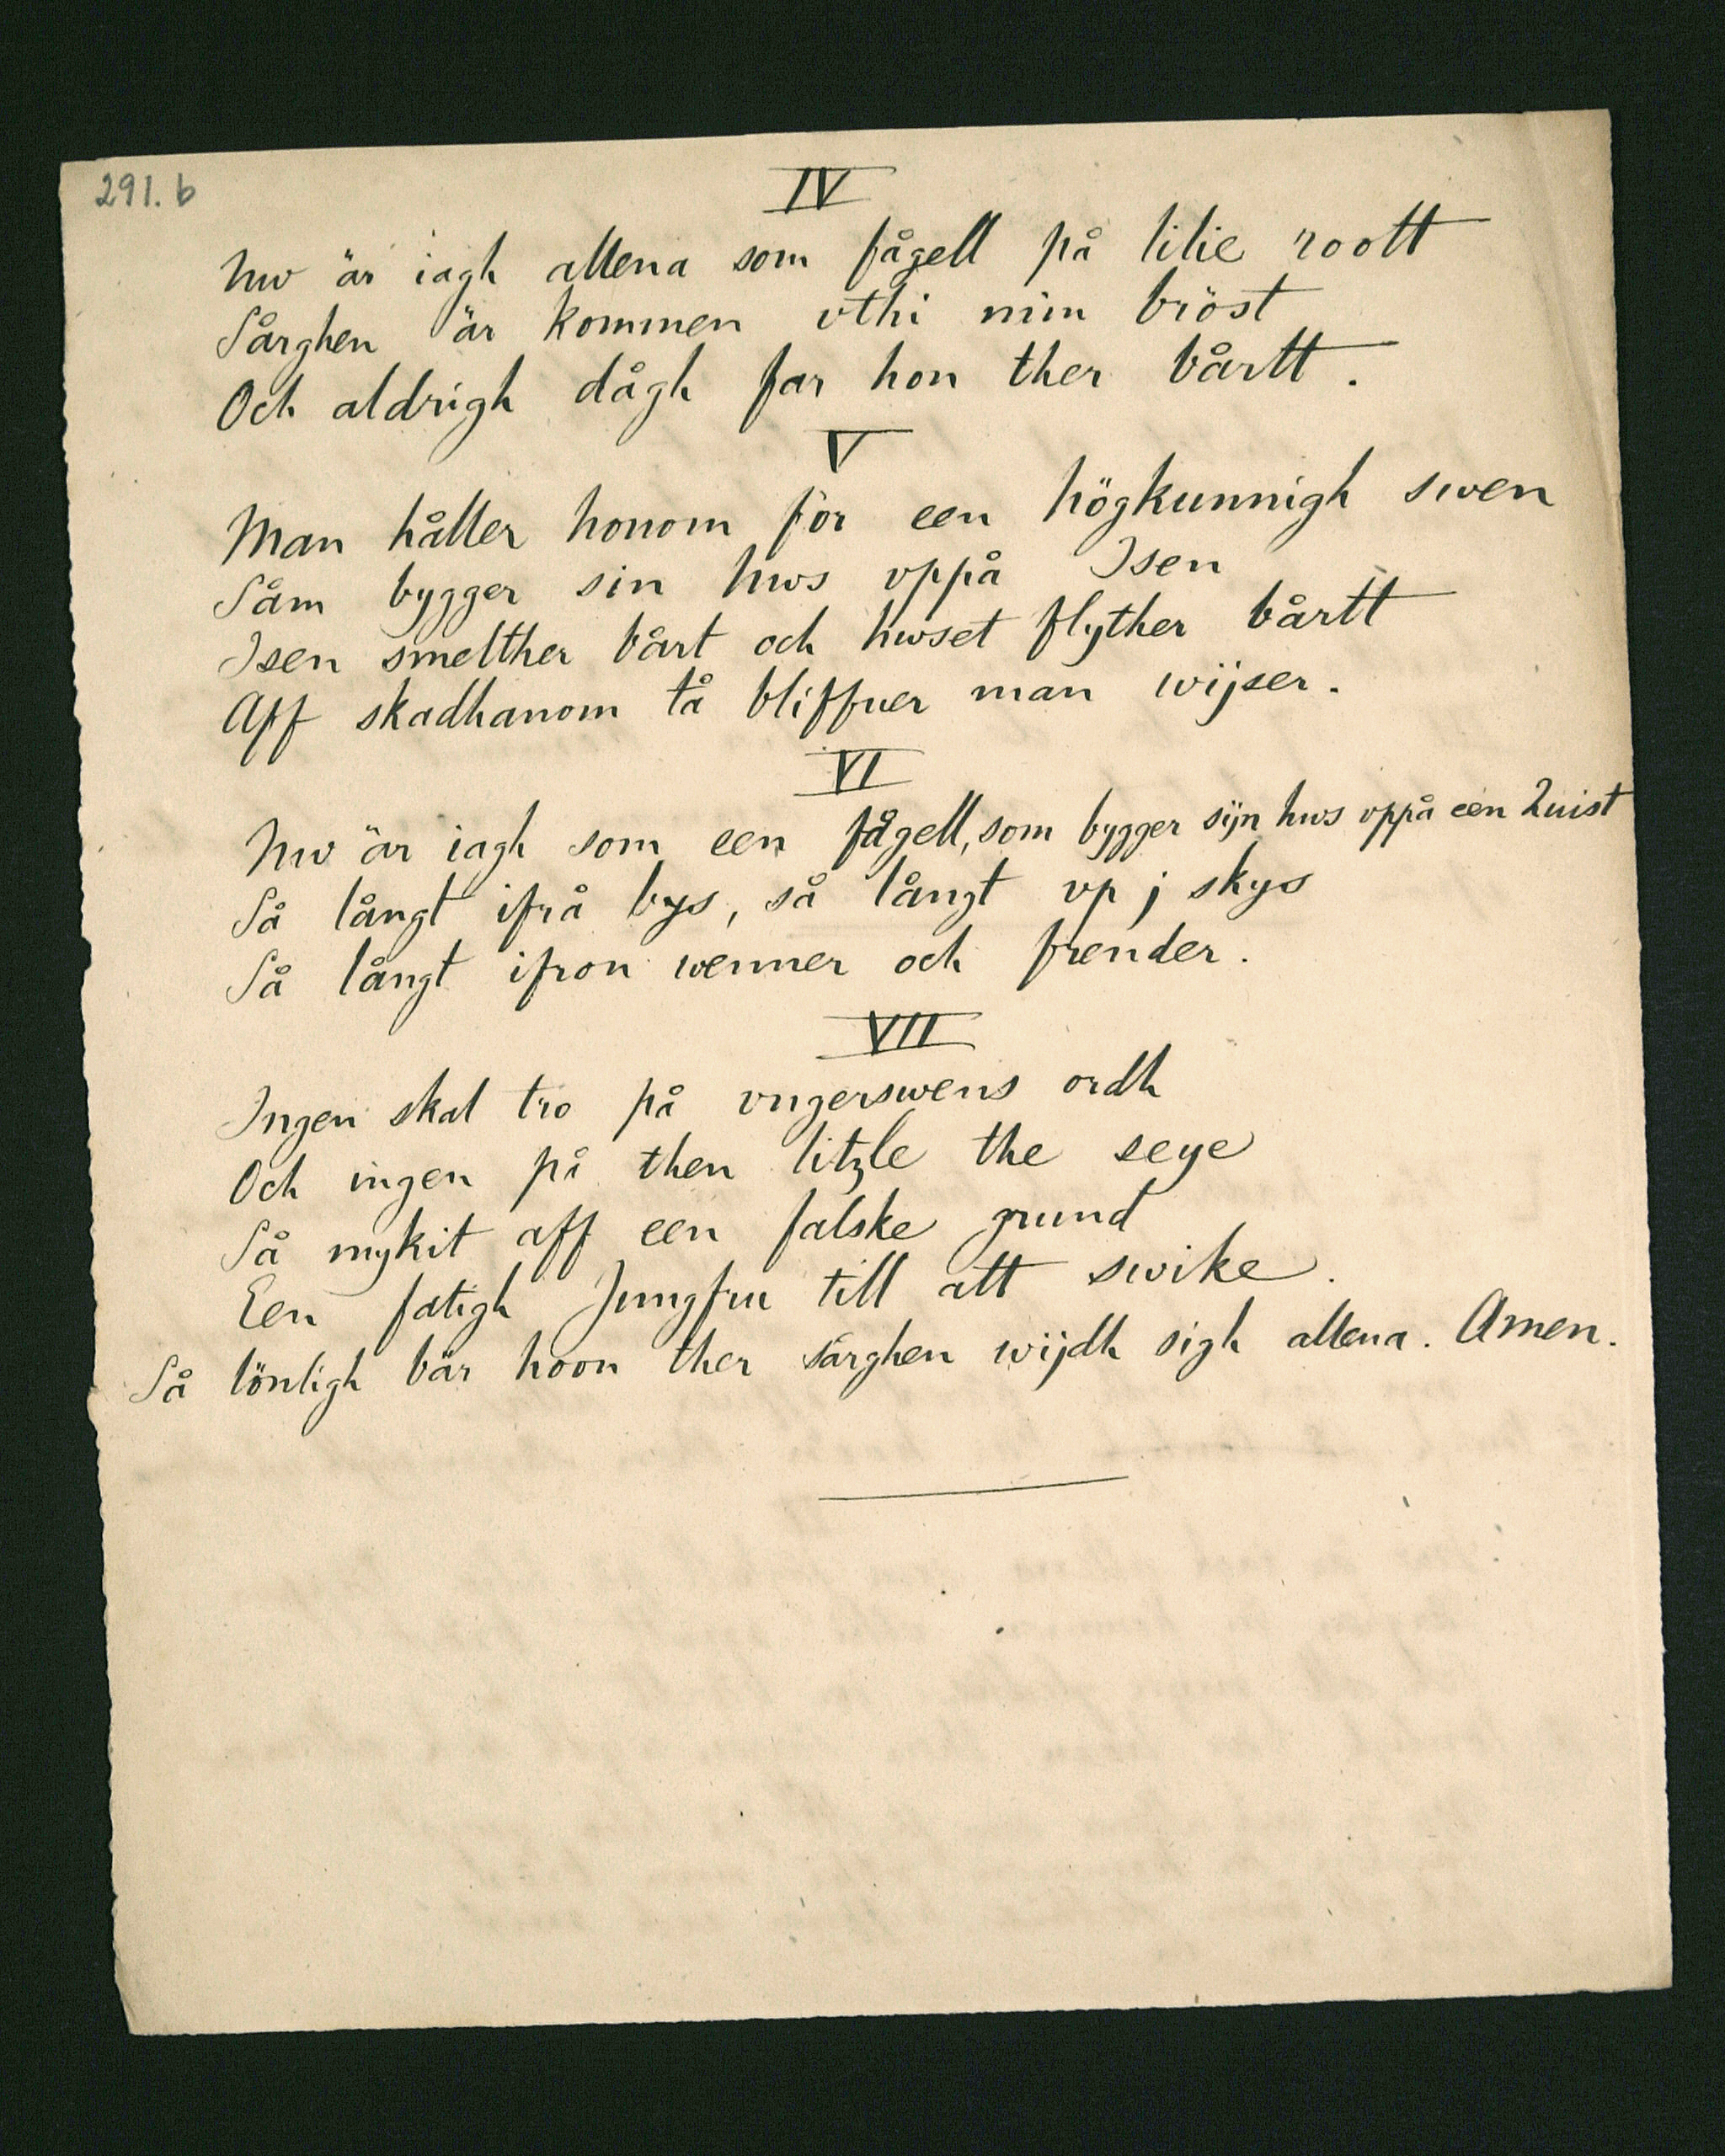 291. b
IV
Nw är iagh allena som fågell på lilie roott
Sårghen är kommen vthi min bröst
Och aldrigh dågh far hon ther bårtt.
V
Man håller honom för een högkunnigh swen
Såm bygger sin hws vppå Isen
Isen smelther bårt och hwset flyther bårtt
Aff skadhanom tå bliffuer man wijser.
VI
Nw är iagh som een fågell, som bygger sijn hws vppå een Quist
Så långt ifrå bys, så långt vp j skys
Så långt ifron wenner och frender.
VII
Ingen skal tro på vngerswens ordh
Och ingen på then litzle the seye
Så mykit aff een falske grund
Een fatigh Jungfru till att swike.
Så lönligh bär hoon ther sårghen wijdh sigh allena. Amen.